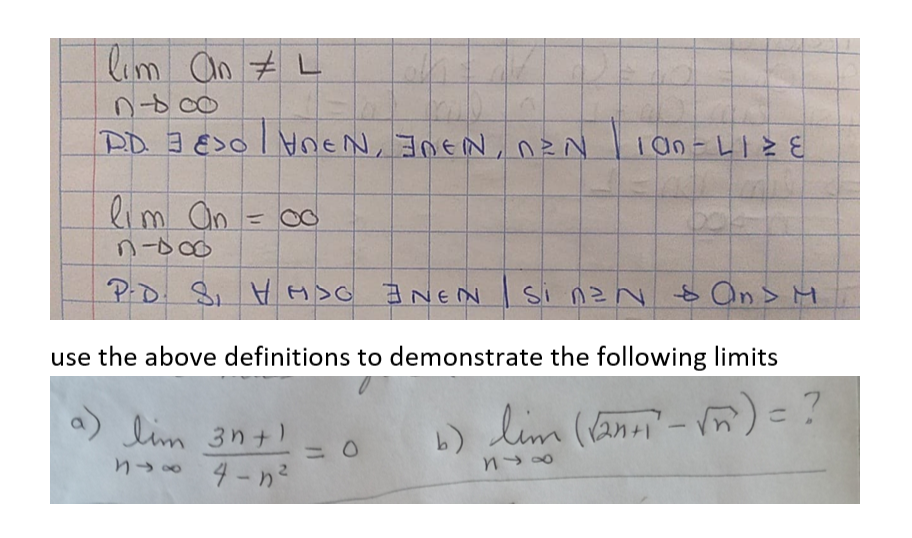 lim an ≠ L
n→∞
P.D. ∃ ε>0 | ∀n∈N, ∃n∈N, n≥N | |an-L| ≥ ε
lim an = ∞
n→∞
P.D. Si ∀ M>0 ∃N∈N | Si n≥N → an > M
use the above definitions to demonstrate the following limits
a) lim 3n+1 / 4-n² = 0 b) lim (√2n+1 - √n) = ?
n→∞ n→∞